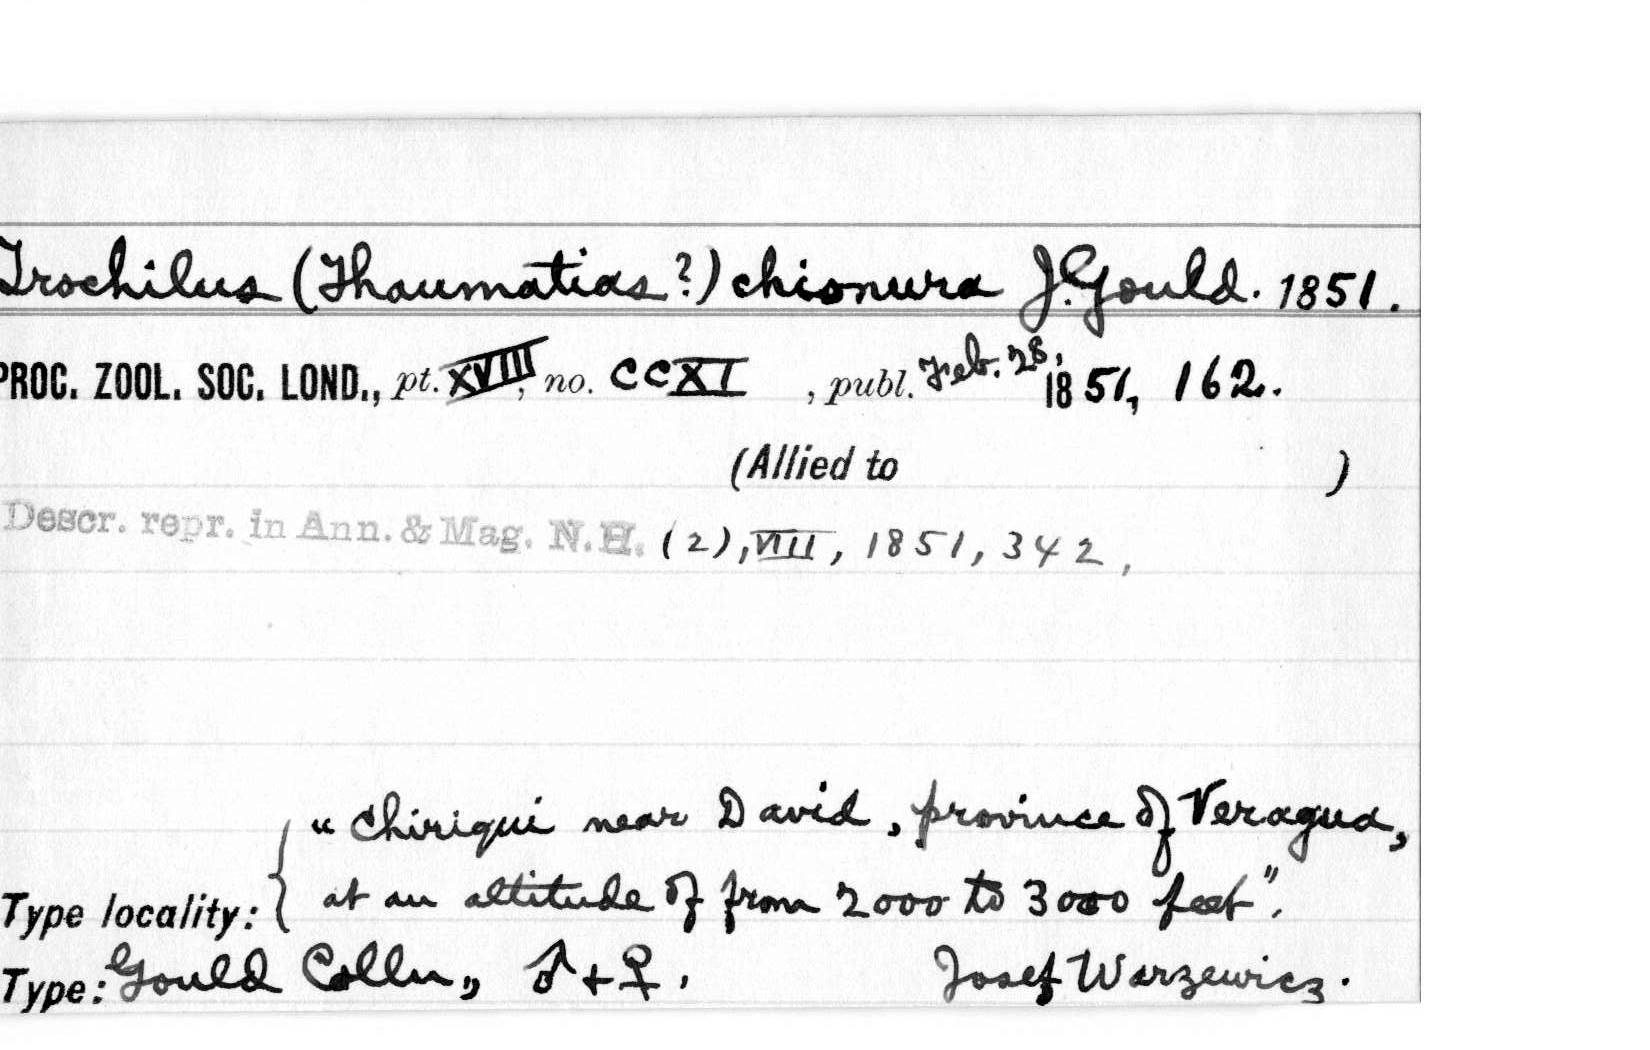 Trochilus (Thaumatias?) chionura J. Gould. 1851.
PROC. ZOOL. SOC. LOND., pt. XVIII, no. CCXI , publ. Feb. 28, 1851, 162.
(Allied to )
Descr. repr. in Ann. & Mag. N.H. (2), VIII, 1851, 342,
"Chiriqui near David, province of Veragua,
Type locality: { at an altitude of from 2000 to 3000 feet".
Type: Gould Colln., ♂ + ♀. Josef Warzewicz.